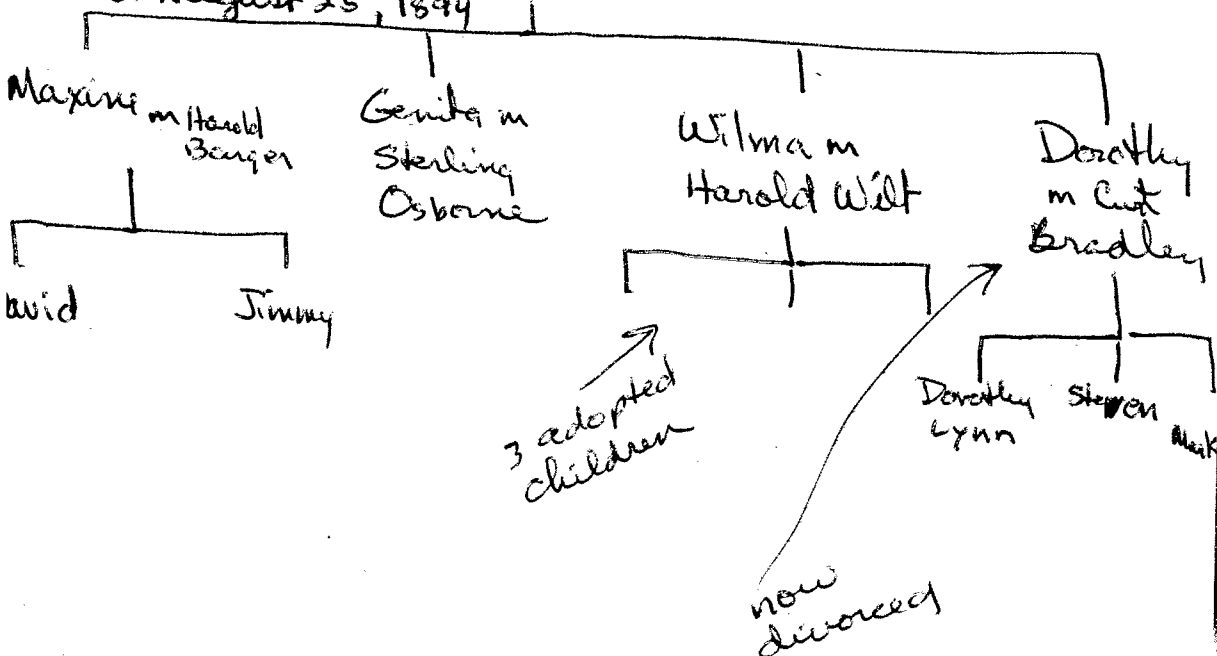 August 25, 1894
Maxine m Harold
Barger
Genita m
Sterling
Osborne
Wilma m
Harold Wilt
Dorothy
m Curt
Bradley
Jimmy
3 adopted
children
Dorothy
Lynn
Steven
Mark
now
divorced